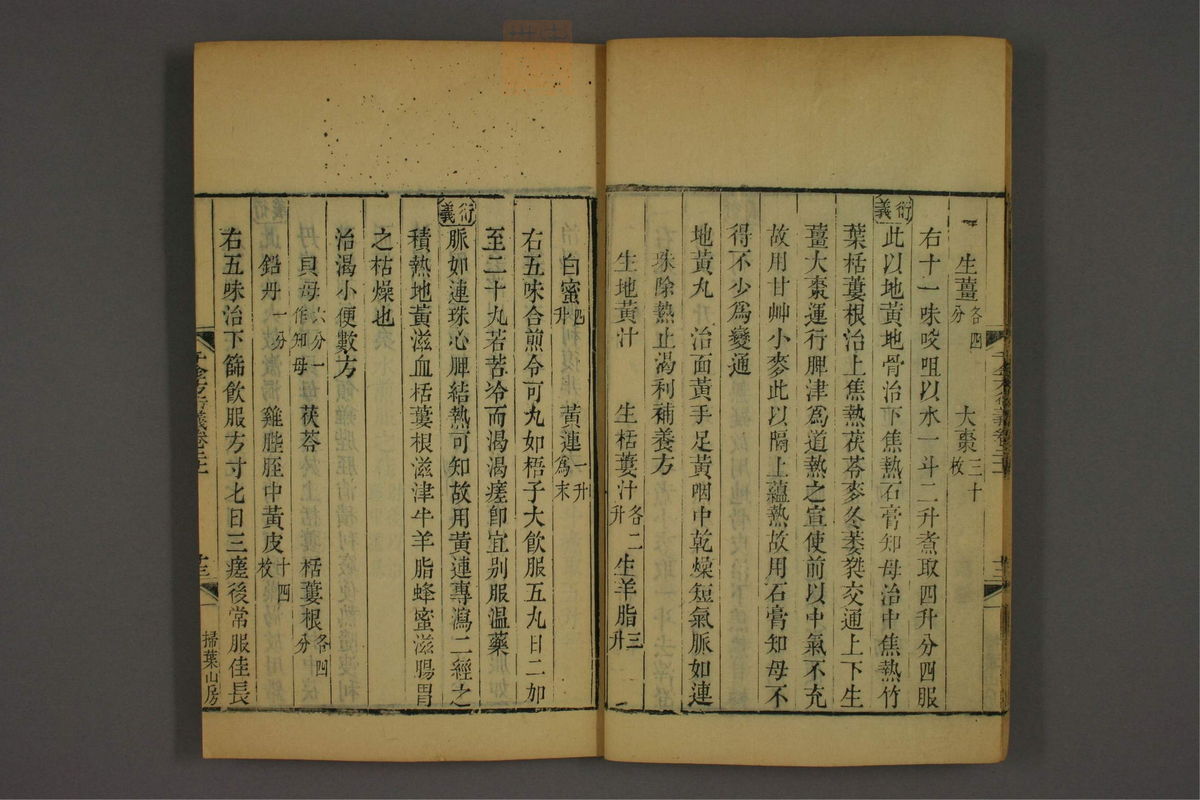 生薑各四分　大棗三十枚
右十一味㕮咀以水一斗二升煮取四升分四服
衍義
此以地黃地骨治下焦熱石膏知母治中焦熱竹
葉栝蔞根治上焦熱茯苓麥冬萎蕤交通上下生
薑大棗運行脾津爲道熱之宣使前以中氣不充
故用甘艸小麥此以隔上蘊熱故用石膏知母不
得不少爲變通
地黃丸　治面黃手足黃咽中乾燥短氣脈如連
珠除熱止渴利補養方
生地黃汁　生栝蔞汁各二升　生羊脂三升
白蜜四升　黃連一升爲末
右五味合煎令可丸如梧子大飲服五丸日二加
至二十丸若苦冷而渴渴瘥卽宜别服溫藥
衍義
脈如連珠心脾結熱可知故用黃連專瀉二經之
積熱地黃滋血栝蔞根滋津牛羊脂蜂蜜滋腸胃
之枯燥也
治渴小便數方
貝母六分一作知母　茯苓　栝蔞根各四分
鉛丹一分　雞膍胵中黃皮十四枚
右五味治下篩飲服方寸匕日三瘥後常服佳長
掃葉山房